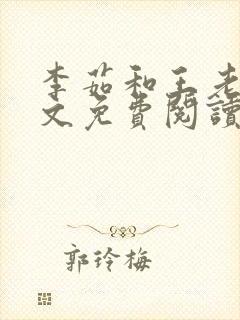 李茹和王老
文免費閱讀
郭玲梅